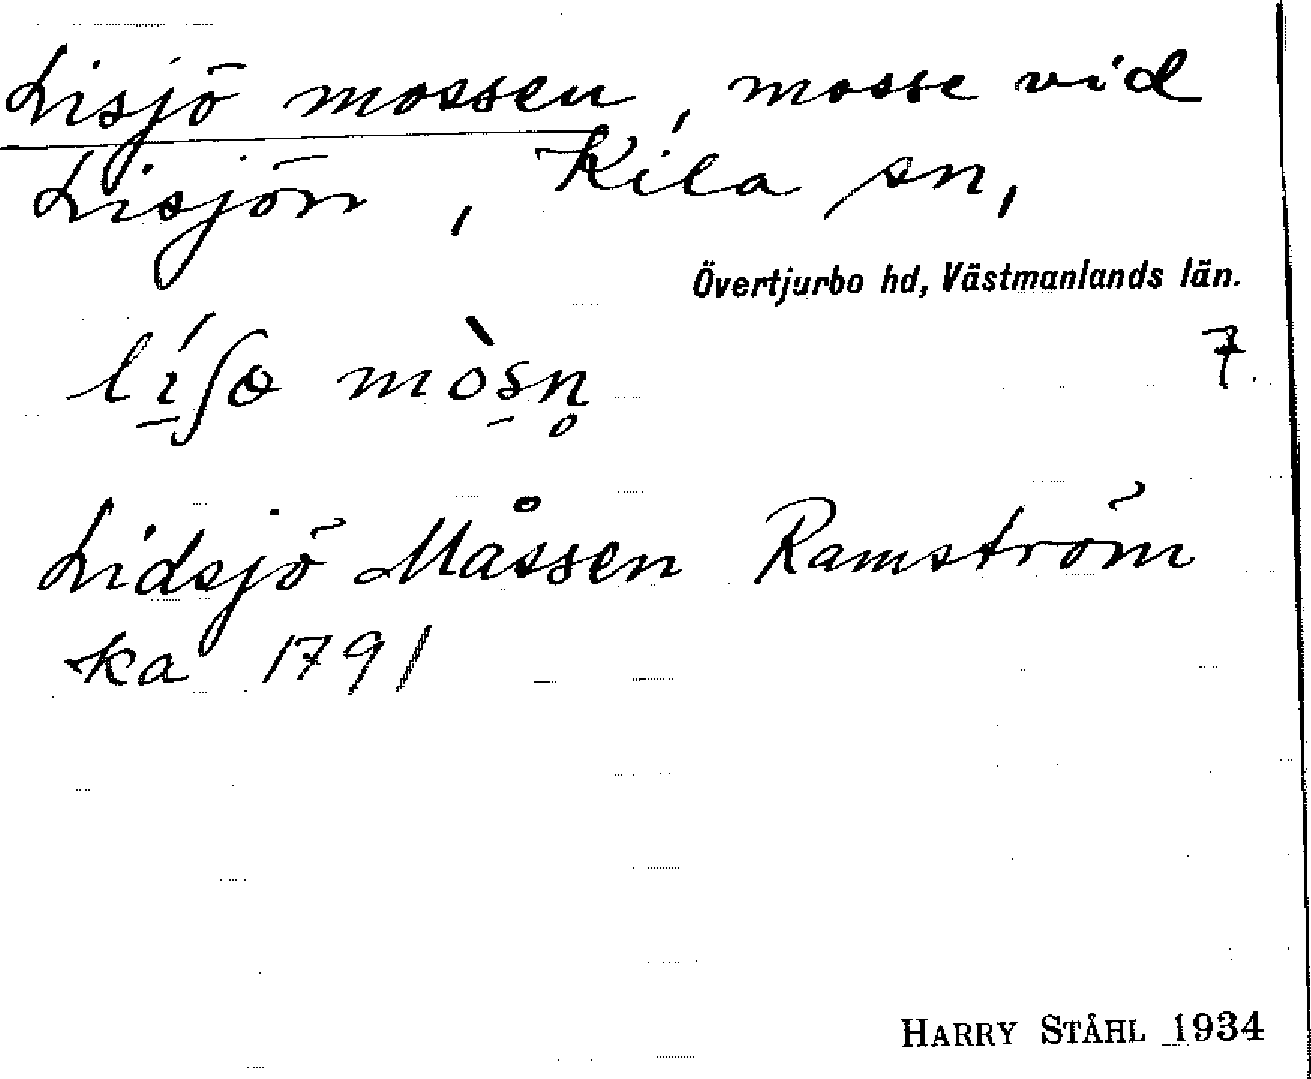 Lisjö mossen, mosse vid
Lisjön, Kila sn,
Övertjurbo hd, Västmanlands län.
7.
lí̱ʃə mòs̱n̥
Lidsjö Måssen Ramström
ka 1791
HARRY STÅHL 1934